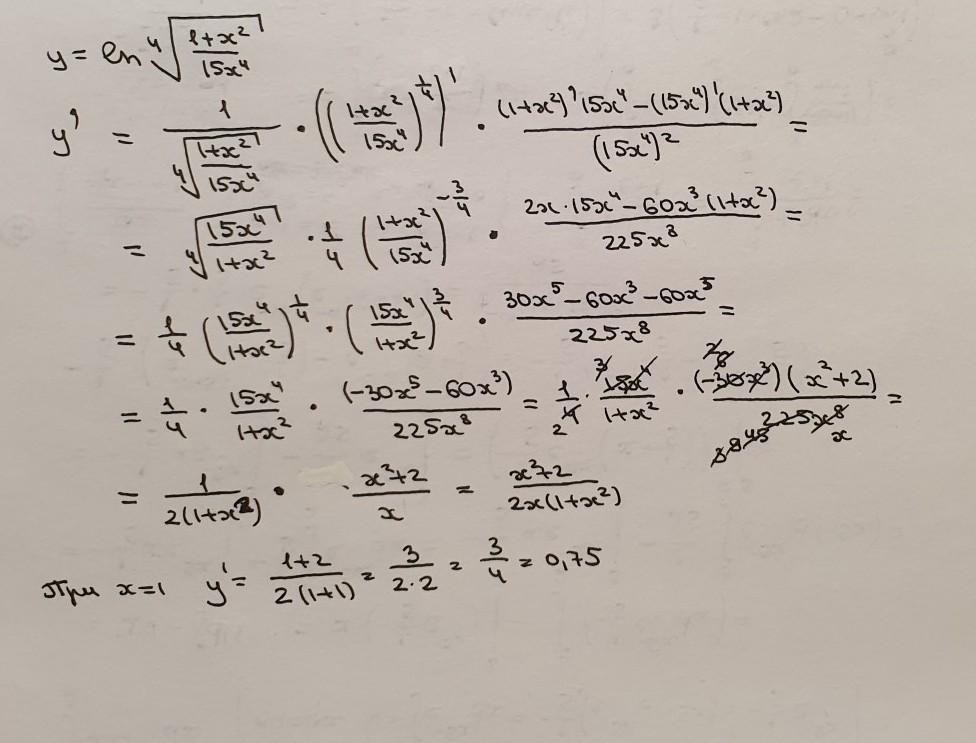 y = ln ⁴√((1+x²)/(15x⁴))
y' = 1/(⁴√((1+x²)/(15x⁴))) · (((1+x²)/(15x⁴))^(1/4))' · ((1+x²)' 15x⁴ − (15x⁴)' (1+x²))/((15x⁴)²) =
= ⁴√((15x⁴)/(1+x²)) · 1/4 ((1+x²)/(15x⁴))^(−3/4) · (2x·15x⁴ − 60x³(1+x²))/(225x⁸) =
= 1/4 ((15x⁴)/(1+x²))^(1/4) · ((15x⁴)/(1+x²))^(3/4) · (30x⁵ − 60x³ − 60x⁵)/(225x⁸) =
= 1/4 · (15x⁴)/(1+x²) · (−30x⁵ − 60x³)/(225x⁸) = 1/4 · (15x⁴)/(1+x²) · ((−30x³)(x²+2))/(225x⁸) =
= 1/(2(1+x²)) · · (x²+2)/x = (x²+2)/(2x(1+x²))
При x=1 y' = (1+2)/(2(1+1)) = 3/(2·2) = 3/4 = 0,75